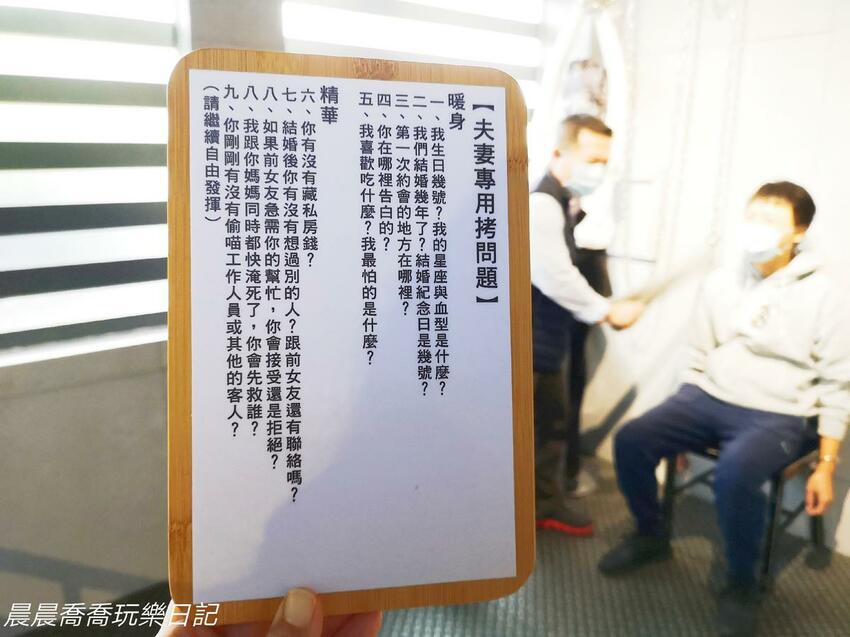 【夫妻專用拷問題】
暖身
一、我生日幾號？我的星座與血型是什麼？
二、我們結婚幾年了？結婚紀念日是幾號？
三、第一次約會的地方在哪裡？
四、你在哪裡告白的？
五、我喜歡吃什麼？我最怕的是什麼？
精華
六、你有沒有藏私房錢？
七、結婚後你有沒有想過別的人？跟前女友還有聯絡嗎？
八、如果前女友急需你的幫忙，你會接受還是拒絕？
八、我跟你媽媽同時都快淹死了，你會先救誰？
九、你剛剛有沒有偷喵工作人員或其他的客人？
（請繼續自由發揮）
晨晨喬喬玩樂日記